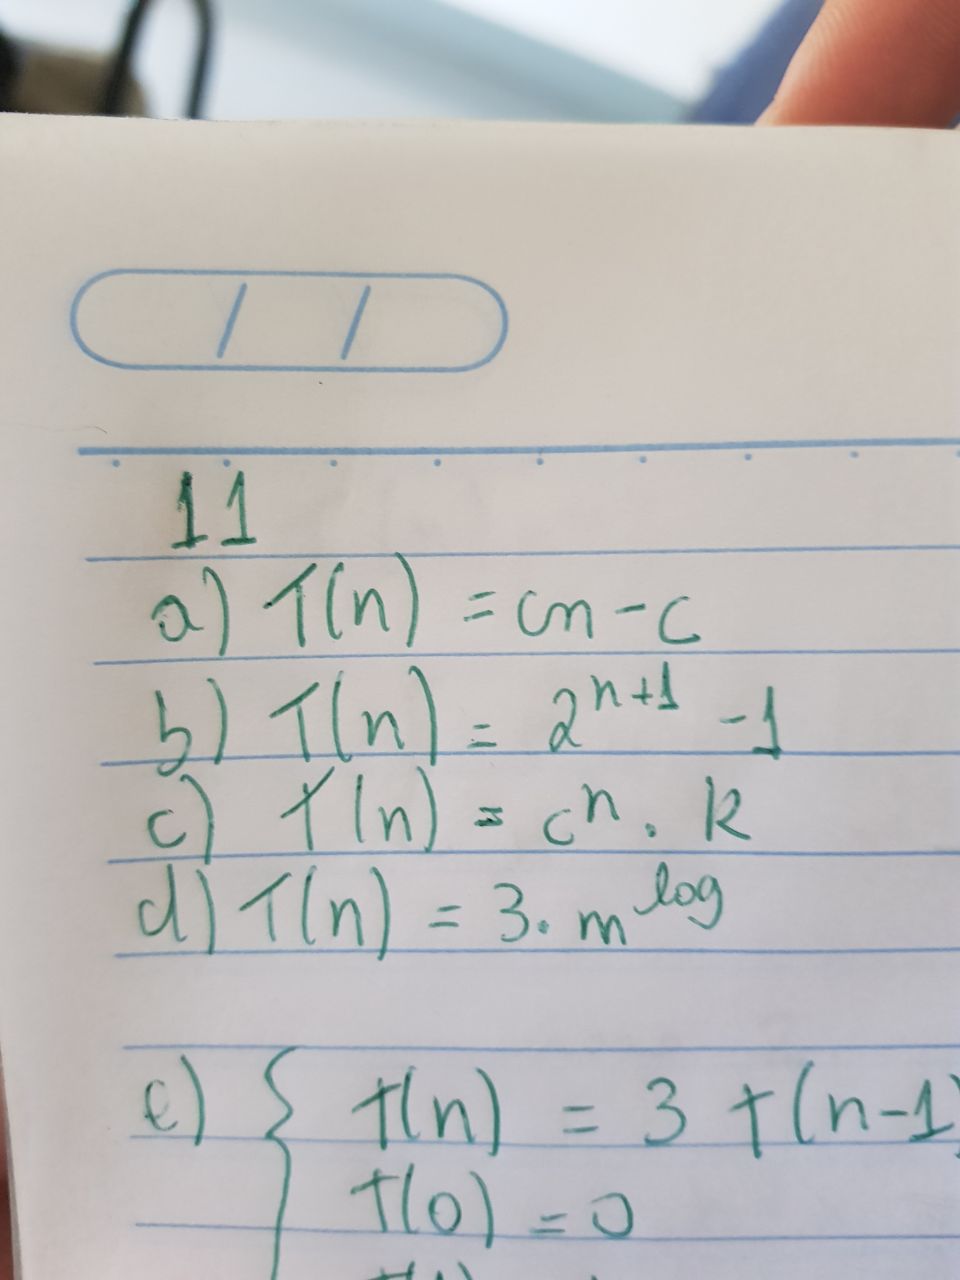 11
a) T(n) = cn - c
b) T(n) = 2^{n+1} - 1
c) T(n) = c^n . k
d) T(n) = 3. m^{log}
e) { T(n) = 3 T(n-1)
T(0) = 0